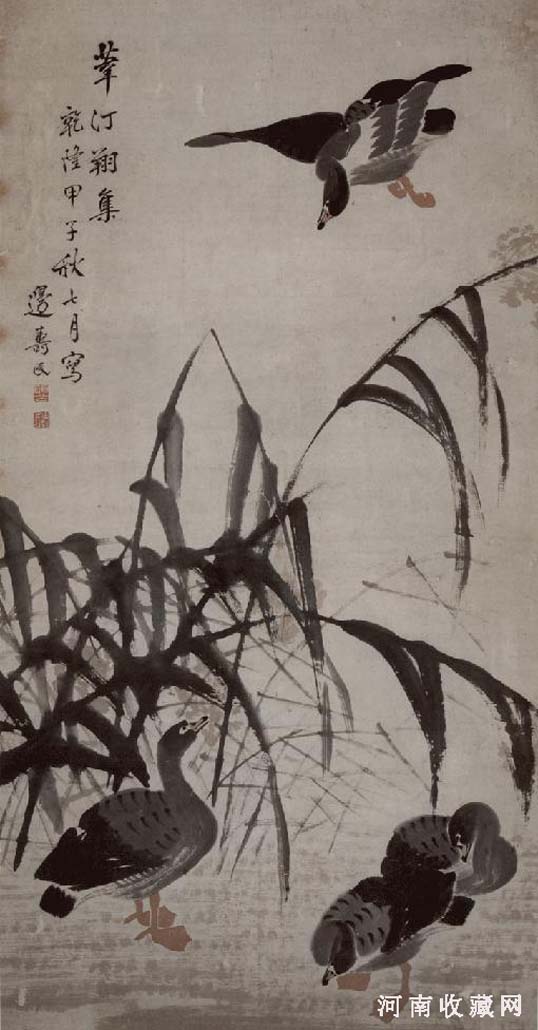 葦汀翔集
乾隆甲子秋七月寫
邊壽民
河南收藏网